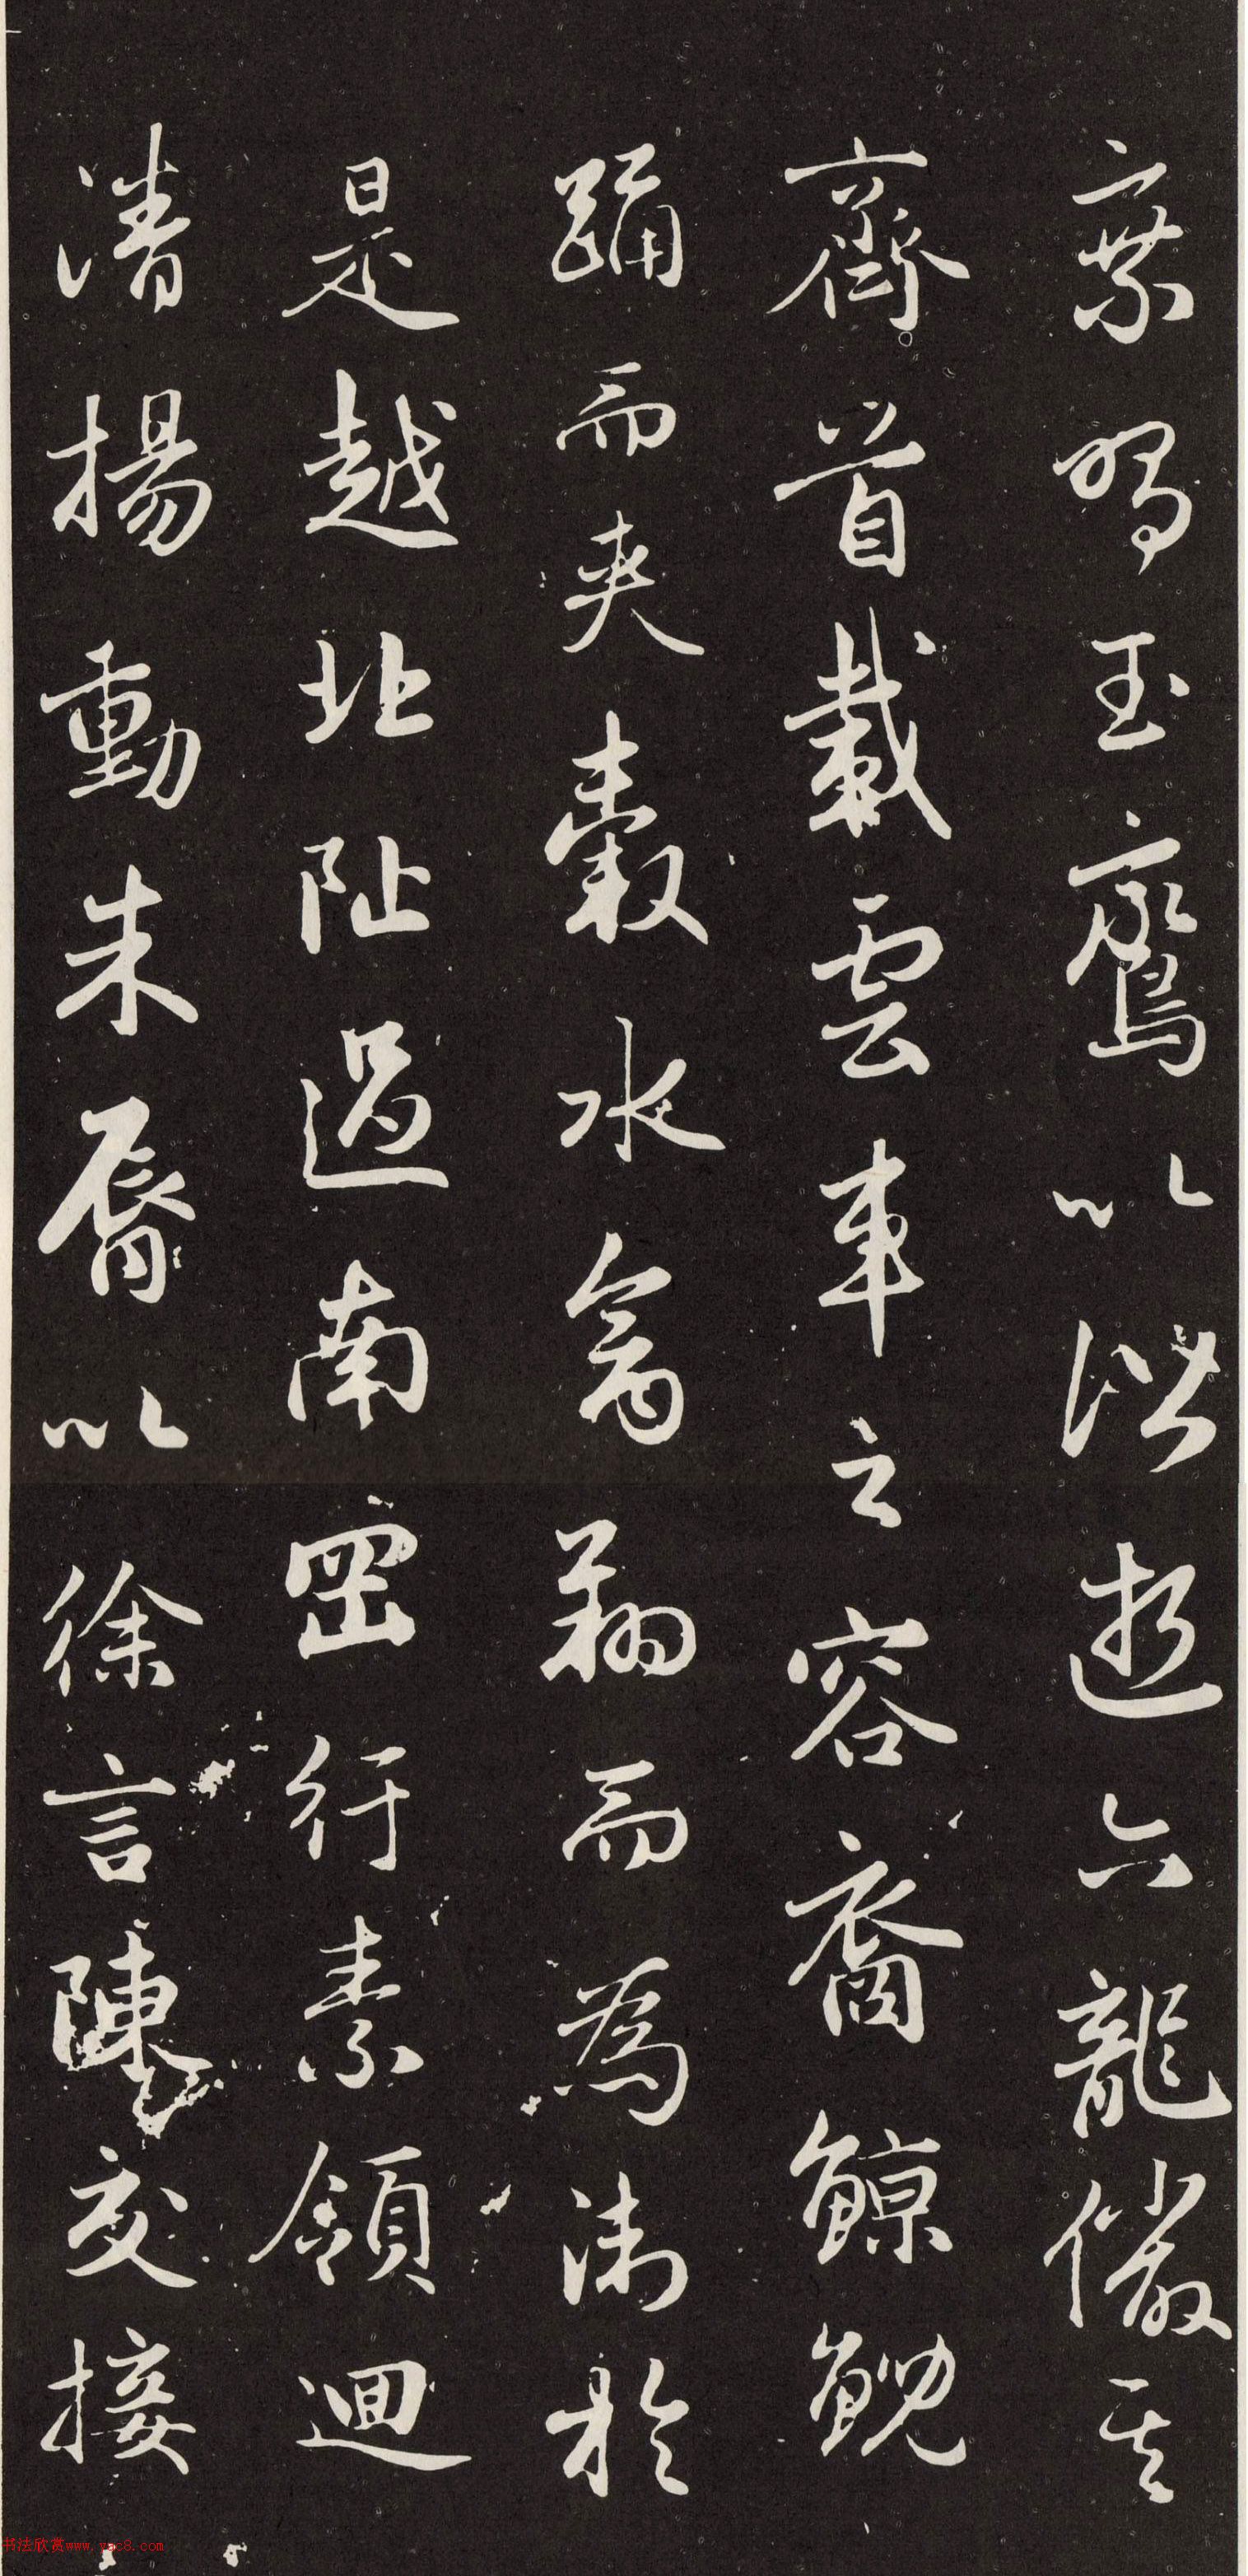 乘鳴玉鸞以偕逝六龍儼其
齊首載雲車之容裔鯨鯢
踊而夾轂水禽翔而為衛於
是越北阯過南岡紆素領迴
清揚動朱脣以徐言陳交接
书法欣赏www.yac8.com